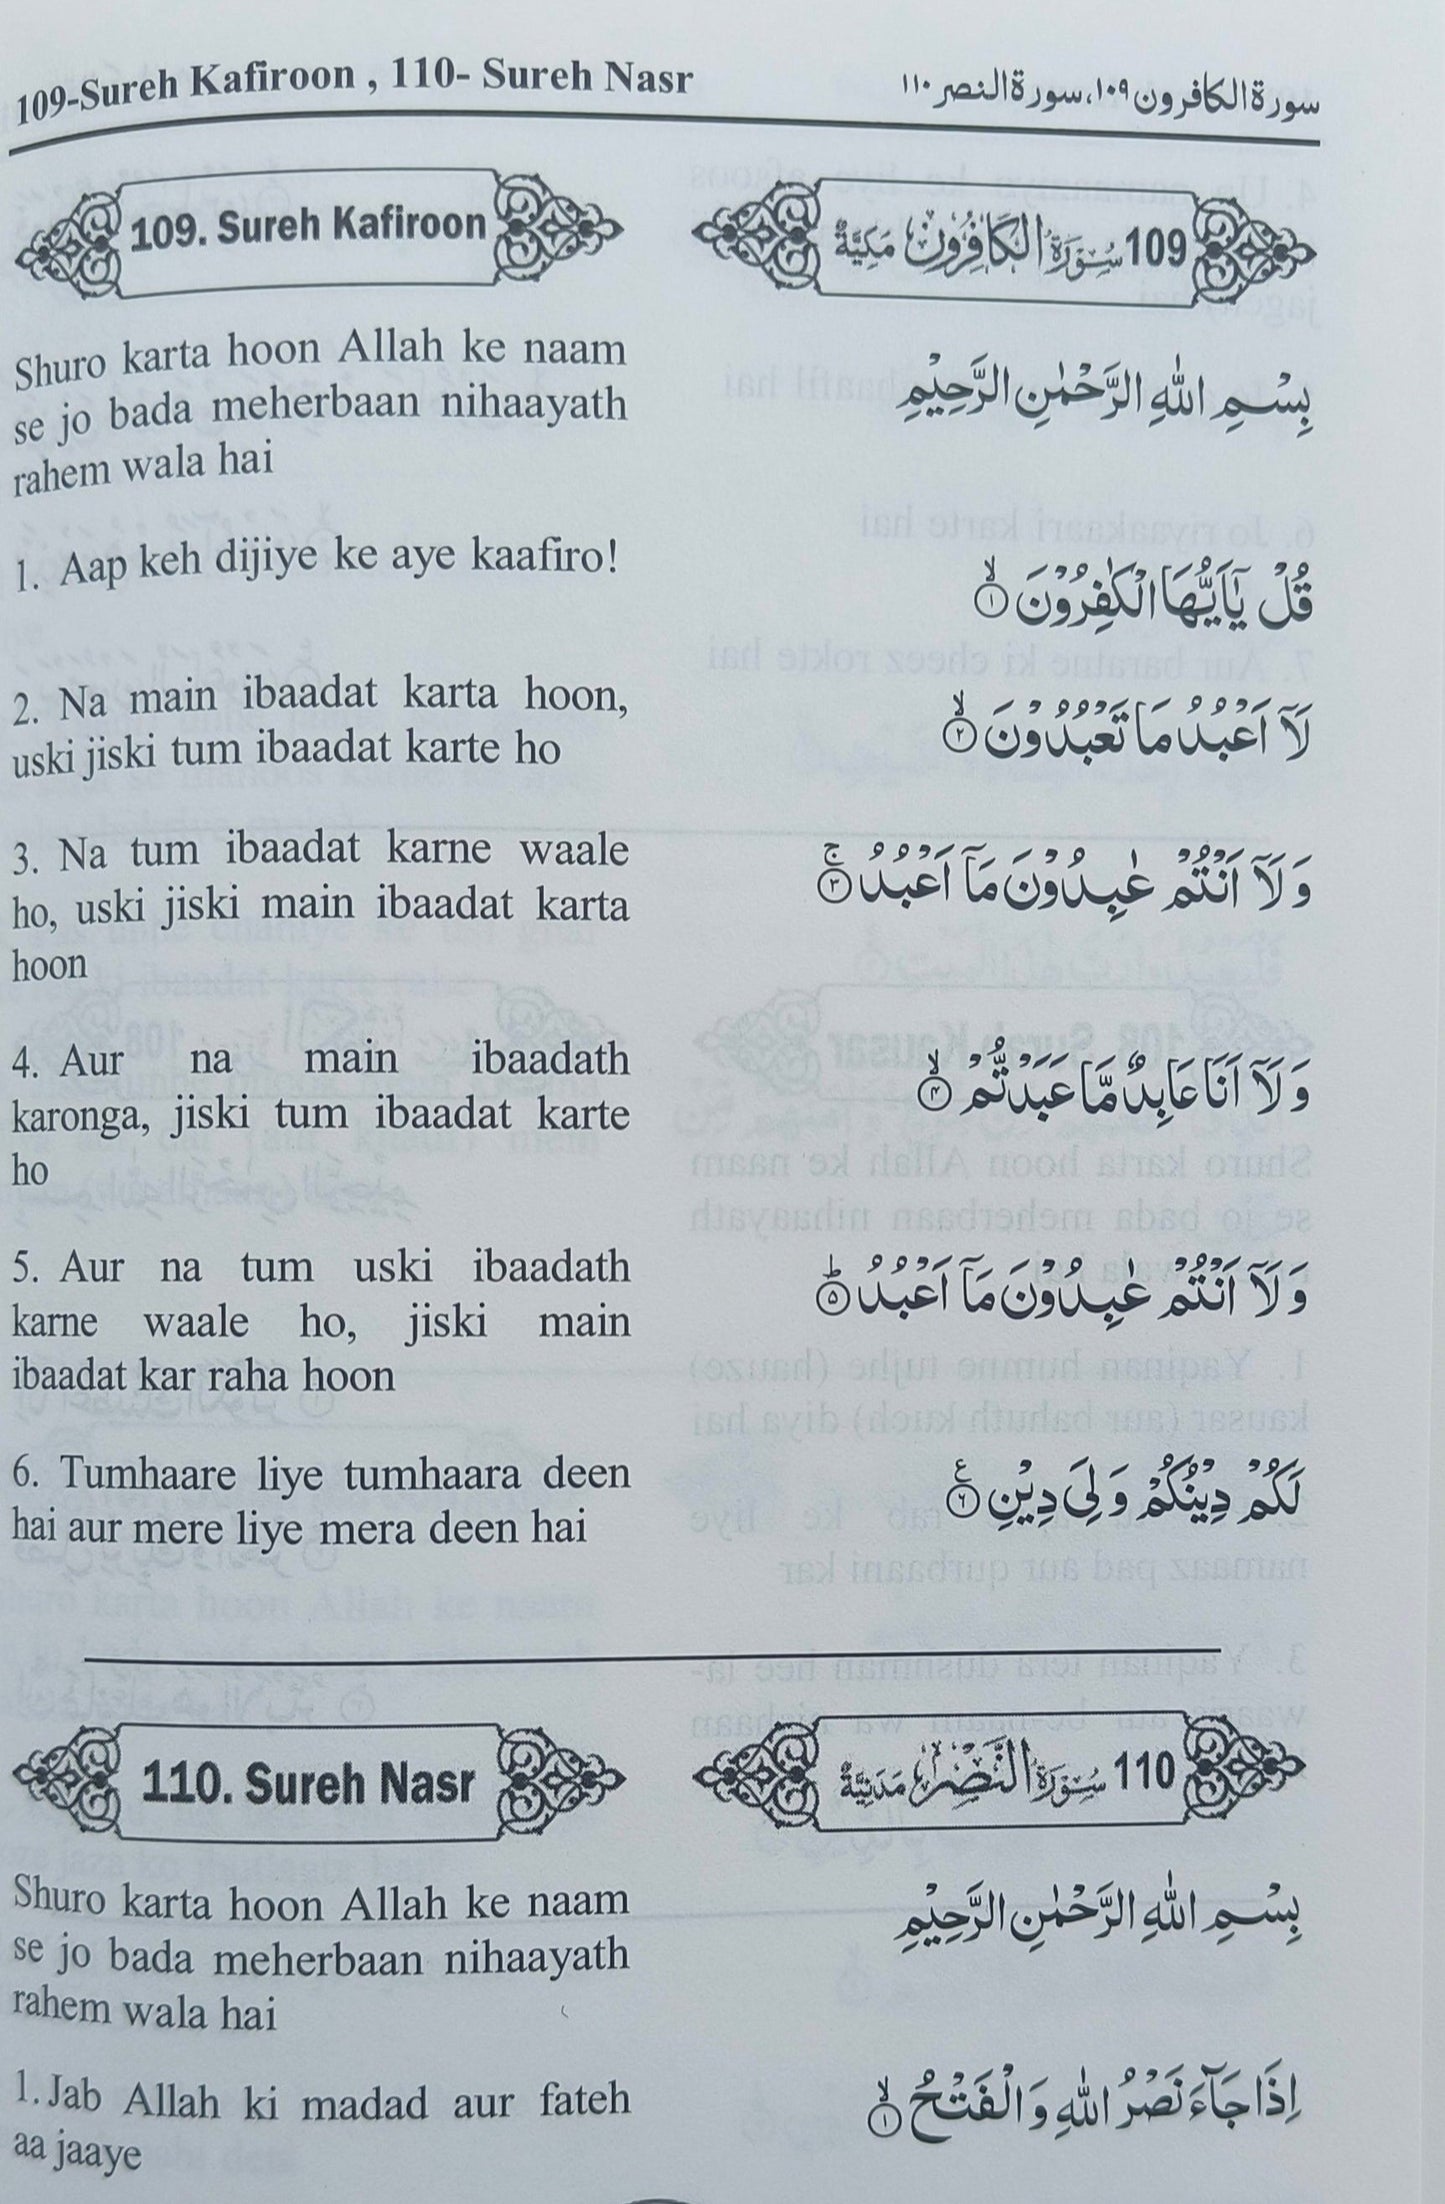 109-Sureh Kafiroon , 110- Sureh Nasr
سورة الكافرون ۱۰۹، سورة النصر ۱۱۰
109. Sureh Kafiroon
109 سُوْرَةُ الْكَافِرُوْنَ مَكِيَّةٌ
Shuro karta hoon Allah ke naam
se jo bada meherbaan nihaayath
rahem wala hai
بِسْمِ اللّٰهِ الرَّحْمٰنِ الرَّحِيْمِ
1. Aap keh dijiye ke aye kaafiro!
قُلْ يٰٓاَيُّهَا الْكٰفِرُوْنَ ۙ۱
2. Na main ibaadat karta hoon,
uski jiski tum ibaadat karte ho
لَآ اَعْبُدُ مَا تَعْبُدُوْنَ ۙ۲
3. Na tum ibaadat karne waale
ho, uski jiski main ibaadat karta
hoon
وَلَآ اَنْتُمْ عٰبِدُوْنَ مَآ اَعْبُدُ ۚ۳
4. Aur na main ibaadath
karonga, jiski tum ibaadat karte
ho
وَلَآ اَنَا عَابِدٌ مَّا عَبَدْتُّمْ ۙ۴
5. Aur na tum uski ibaadath
karne waale ho, jiski main
ibaadat kar raha hoon
وَلَآ اَنْتُمْ عٰبِدُوْنَ مَآ اَعْبُدُ ؕ۵
6. Tumhaare liye tumhaara deen
hai aur mere liye mera deen hai
لَكُمْ دِيْنُكُمْ وَلِيَ دِيْنِ ۶ع
110. Sureh Nasr
110 سُوْرَةُ النَّصْرِ مَدَنِيَّةٌ
Shuro karta hoon Allah ke naam
se jo bada meherbaan nihaayath
rahem wala hai
بِسْمِ اللّٰهِ الرَّحْمٰنِ الرَّحِيْمِ
1. Jab Allah ki madad aur fateh
aa jaaye
اِذَا جَآءَ نَصْرُ اللّٰهِ وَالْفَتْحُ ۙ۱